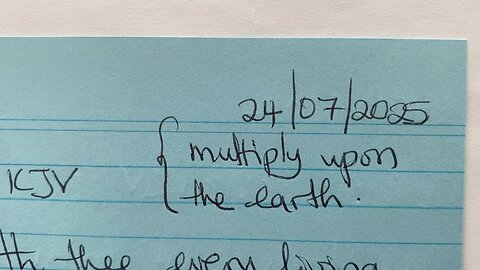 24/07/2025
multiply upon
KJV the earth.
th thee every living